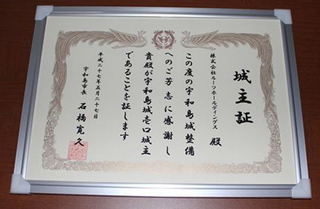 城主証
株式会社ルーツホールディングス 殿
この度の宇和島城整備
へのご芳志に感謝し
貴殿が宇和島城壱口城主
であることを証します
平成二十七年五月二十七日
宇和島市長 石橋寛久